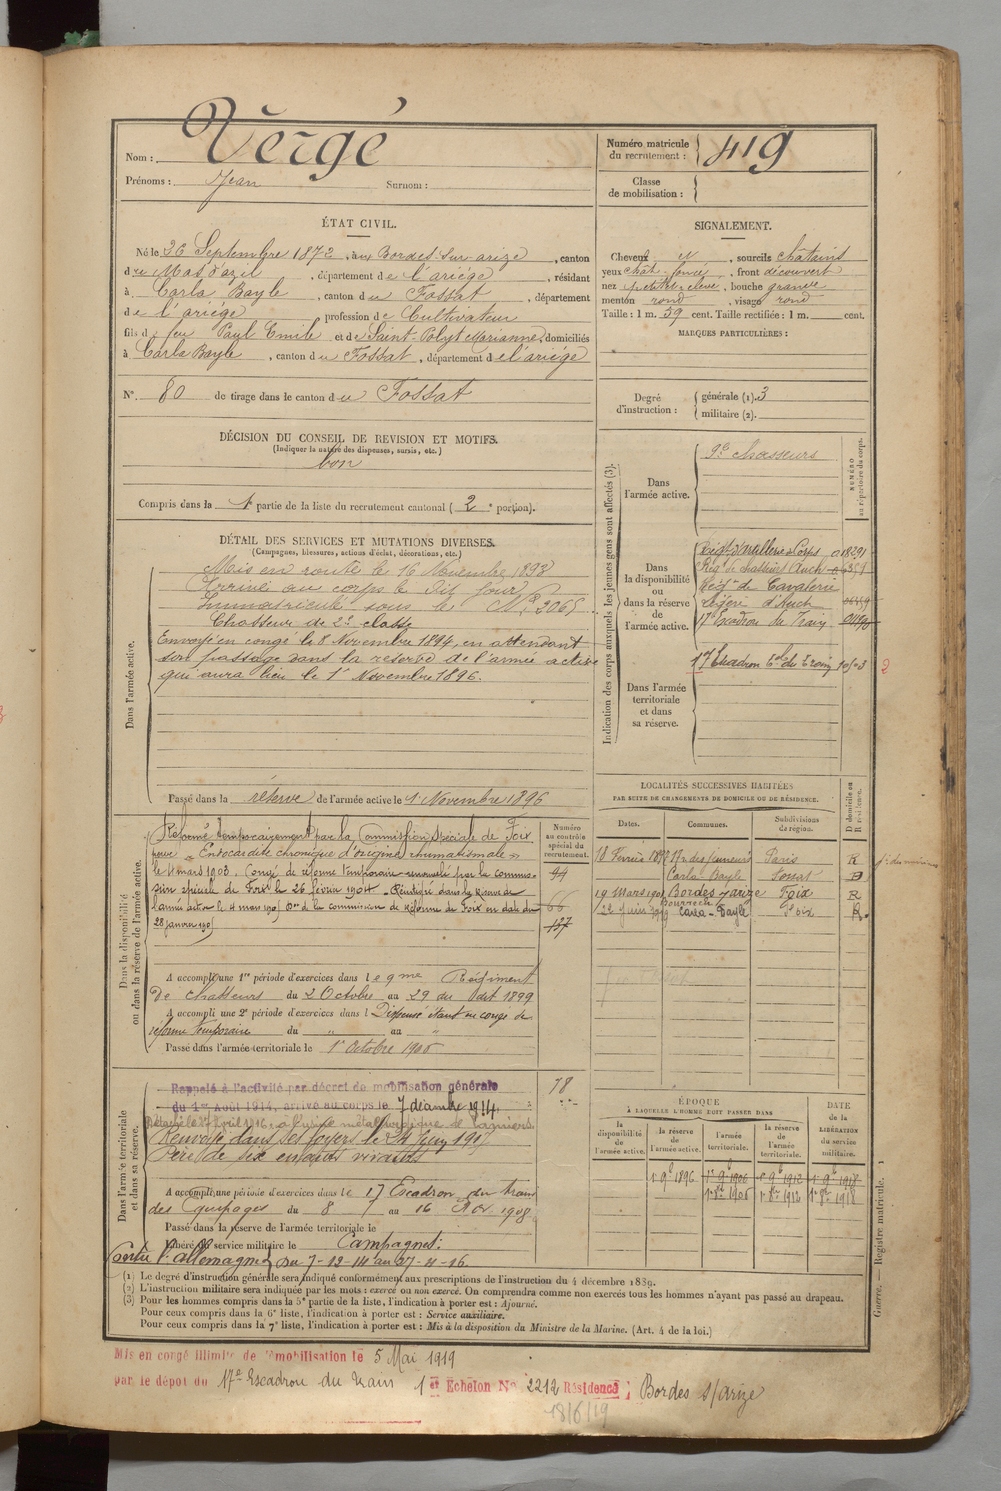 Nom : Vergé
Prénoms : Jean Surnom :
Numéro matricule du recrutement : 419
Classe de mobilisation :
ÉTAT CIVIL.
Né le 26 Septembre 1872, à Bordes-sur-arize, canton
du Mas d'azil, département de l'ariége, résidant
à Carla Bayle, canton du Fossat, département
de l'ariége, profession de Cultivateur
fils de feu Paul Emile et de Saint-Polyt Marianne, domiciliés
à Carla Bayle, canton du Fossat, département de l'ariége
N° 80 de tirage dans le canton du Fossat
SIGNALEMENT.
Cheveux, sourcils châtains
yeux chât-foncé, front découvert
nez, bouche grande
menton rond, visage rond
Taille : 1 m. 59 cent. Taille rectifiée : 1 m. cent.
MARQUES PARTICULIÈRES :
Degré d'instruction : générale (1). 3
militaire (2).
DÉCISION DU CONSEIL DE REVISION ET MOTIFS.
(Indiquer la nature des dispenses, sursis, etc.)
bon
Compris dans la 1e partie de la liste du recrutement cantonal ( 2e portion).
DÉTAIL DES SERVICES ET MUTATIONS DIVERSES.
(Campagnes, blessures, actions d'éclat, décorations, etc.)
Dans l'armée active.
Mis en route le 16 Novembre 1893
Arrivé au corps le dit jour
Immatriculé sous le N° 3065
Chasseur de 2e classe
Envoyé en congé le 8 Novembre 1894, en attendant
son passage dans la réserve de l'armée active
qui aura lieu le 1er Novembre 1896.
Passé dans la réserve de l'armée active le 1 Novembre 1896
Indication des corps auxquels les jeunes gens sont affectés (3).
NUMÉRO au répertoire du corps.
Dans l'armée active.
9e Chasseurs
Dans la disponibilité ou dans la réserve de l'armée active.
Régt d'artillerie Corps
Rég de chasseurs Auch
Régt de Cavalerie
Légère d'Auch
17e Escadron du Train
Dans l'armée territoriale et dans sa réserve.
17 Escadron du Train
Dans la disponibilité ou dans la réserve de l'armée active.
Numéro au contrôle spécial du recrutement.
Réformé temporairement par la Commission spéciale de Foix
pour « Endocardite chronique d'origine rhumatismale »
le 4 mars 1903. Congé de réforme temporaire renouvelé par la commis-
sion spéciale de Foix le 26 février 1904 - Réintégré dans la réserve de
l'armée active le 4 mars 1905 Don de la commission de réforme de Foix en date du
28 janvier 1905
137
A accompli une 1re période d'exercices dans le 9me Régiment
de chasseurs du 2 Octobre au 29 du dit 1899
A accompli une 2e période d'exercices dans l Dispensé étant en congé de
réforme temporaire du " au "
Passé dans l'armée territoriale le 1er Octobre 1906
LOCALITÉS SUCCESSIVES HABITÉES
PAR SUITE DE CHANGEMENTS DE DOMICILE OU DE RÉSIDENCE.
Dates. Communes. Subdivisions de région. D domicile ou R résidence.
Paris R
Carla-Bayle D
Bordes s/arize Foix R
Carla-Bayle Foix R.
Dans l'armée territoriale et dans sa réserve.
Rappelé à l'activité par décret de mobilisation générale
du 1er Août 1914, arrivé au corps le 7 décembre 1914.
78
Renvoyé dans ses foyers le 24 Juin 1917
Père de six enfants vivants
A accompli une période d'exercices dans le 17 Escadron du train
des Equipages du 8 au 16 1908
Passé dans la réserve de l'armée territoriale le
Libéré du service militaire le
Campagnes :
Contre l'allemagne du 7-12-14 au 27-4-16
ÉPOQUE
À LAQUELLE L'HOMME DOIT PASSER DANS
la disponibilité de l'armée active. la réserve de l'armée active. l'armée territoriale. la réserve de l'armée territoriale. DATE de la LIBÉRATION du service militaire.
1er 9bre 1896 1er 9bre 1906 1er 9bre 1912 1er 9bre 1918
1er 8bre 1906 1er 8bre 1912 1er 8bre 1918
(1) Le degré d'instruction générale sera indiqué conformément aux prescriptions de l'instruction du 4 décembre 1889.
(2) L'instruction militaire sera indiquée par les mots : exercé ou non exercé. On comprendra comme non exercés tous les hommes n'ayant pas passé au drapeau.
(3) Pour les hommes compris dans la 5e partie de la liste, l'indication à porter est : Ajourné.
Pour ceux compris dans la 6e liste, l'indication à porter est : Service auxiliaire.
Pour ceux compris dans la 7e liste, l'indication à porter est : Mis à la disposition du Ministre de la Marine. (Art. 4 de la loi.)
Guerre. — Registre matricule. 1
Mis en congé illimité de démobilisation le 5 Mai 1919
par le dépôt du 17e Escadron du train 1er Echelon No 2212 Résidence : Bordes s/arize
18/6/19